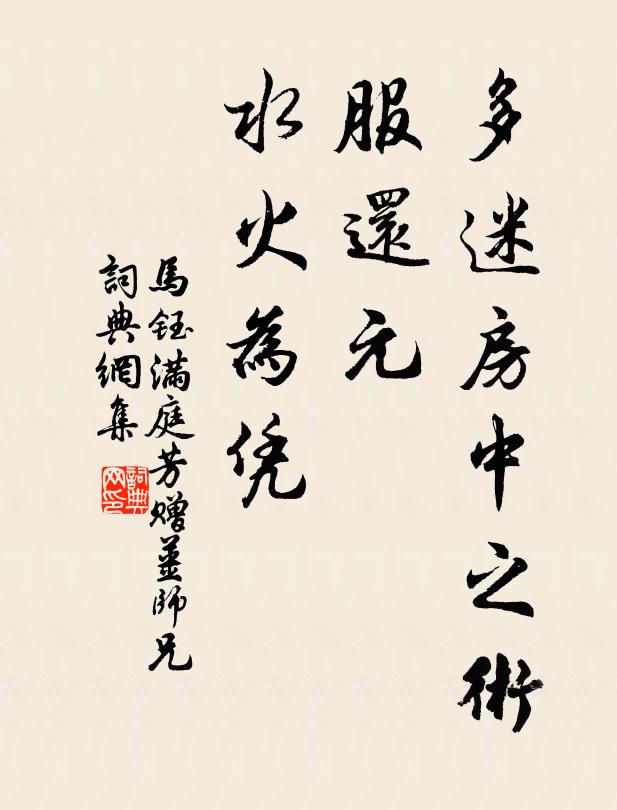 多迷房中之術
服還元
水火為凭
馬鈺滿庭芳贈薑師兄
詞典網集
詞典網印